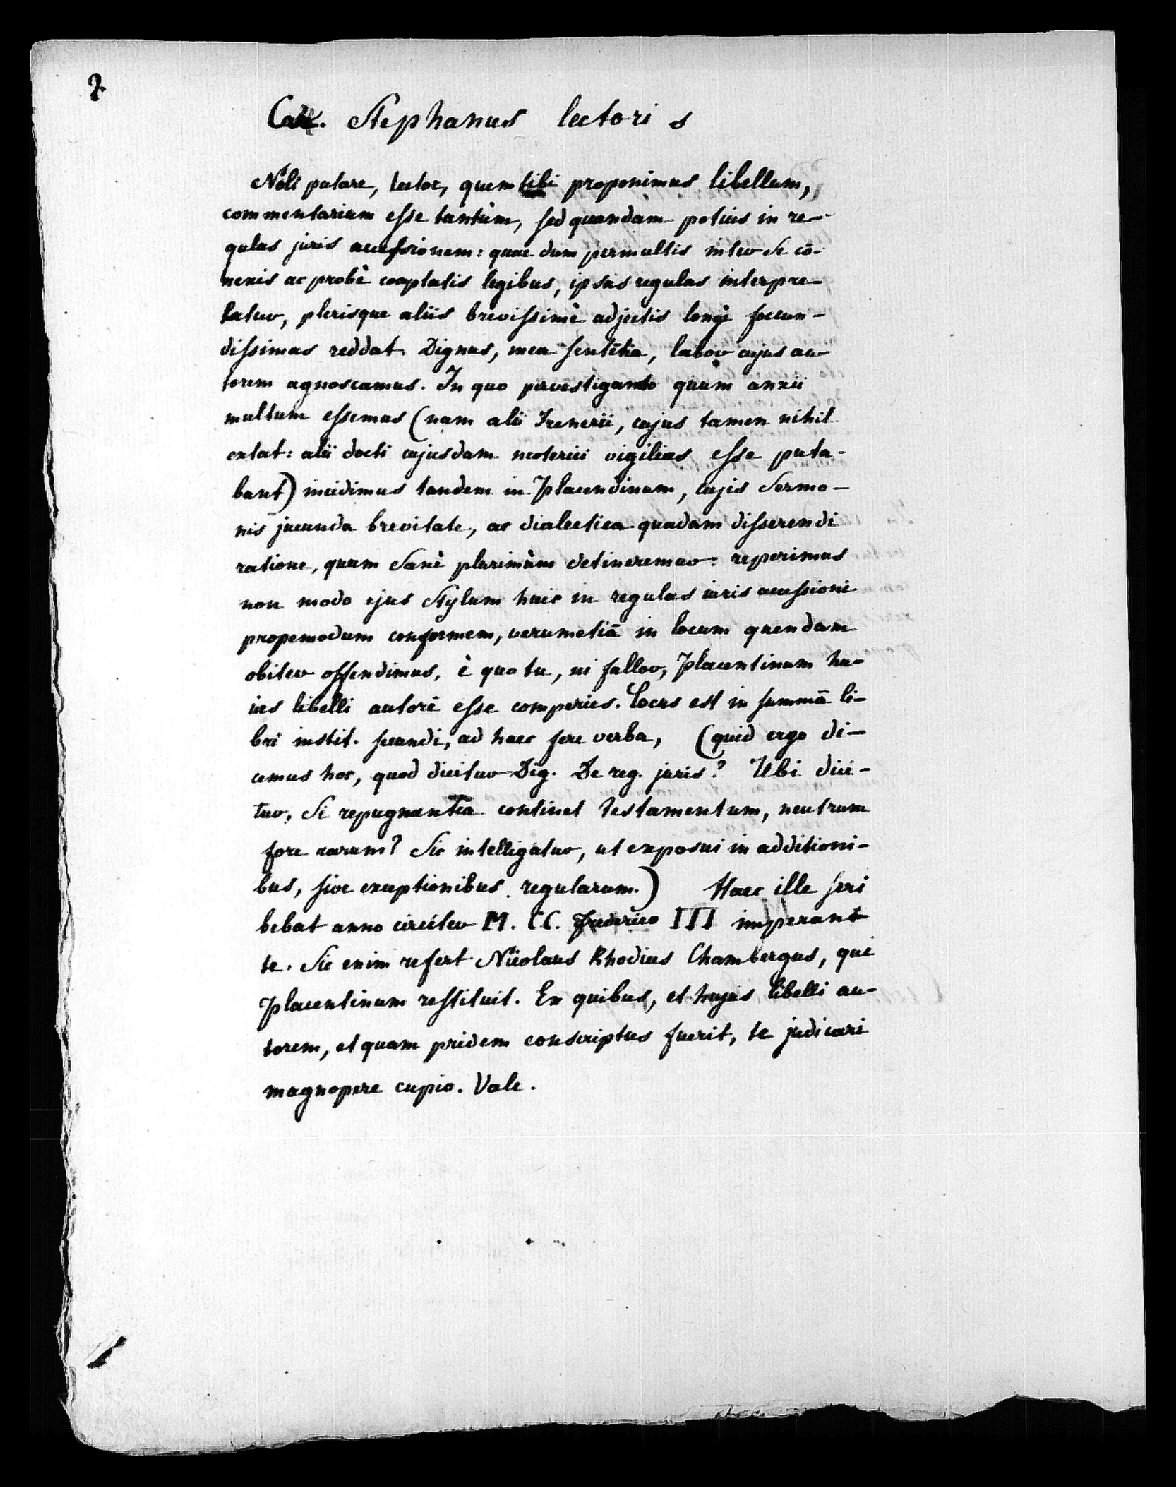 2
Car. Stephanus lectori s
Noli putare, lector, quem tibi proponimus libellum,
commentarium esse tantùm, sed quandam potius in re-
gulas juris accessionem: quae dum permultis inter se cō-
nexis ac probè cooptatis legibus, ipsas regulas interpre-
tatur, plerisque aliis brevissimè adjectis longè fœcun-
dissimas reddat. Dignus, mea sentētia, labor cujus au-
torem agnoscamus. In quo pervestigando quum anxii
multum essemus (nam alii Irenerii, cujus tamen nihil
extat: alii docti cujusdam neoterici vigilias esse puta-
bant) incidimus tandem in Placendinum, cujis sermo-
nis jucunda brevitate, ac dialectica quadam disserendi
ratione, quum sanè plurimùm detineremur: reperimus
non modo ejus stylum huic in regulas iuris accessioni
propemodum conformem, verumetiā in locum quendam
obiter offendimus, è quo tu, ni fallor, Placentinum hu-
ius libelli autorē esse comperies. Locus est in summā li-
bri instit. secundi, ad haec fere verba, (quid ergo di-
cemus hoc, quod dicitur Dig. De reg. juris? Ubi dici-
tur, si repugnantia continet testamentum, neutrum
fore rarum? Sic intelligatur, ut exposui in additioni-
bus, sive exceptionibus regularum.) Haec ille scri
bebat anno circiter M. CC. Frederico III imperant
te. Sic enim refert Nicolaus Rhodius Chambergus, qui
Placentinum restituit. Ex quibus, et hujus libelli au-
torem, et quam pridem conscriptus fuerit, te judicari
magnopere cupio. Vale.